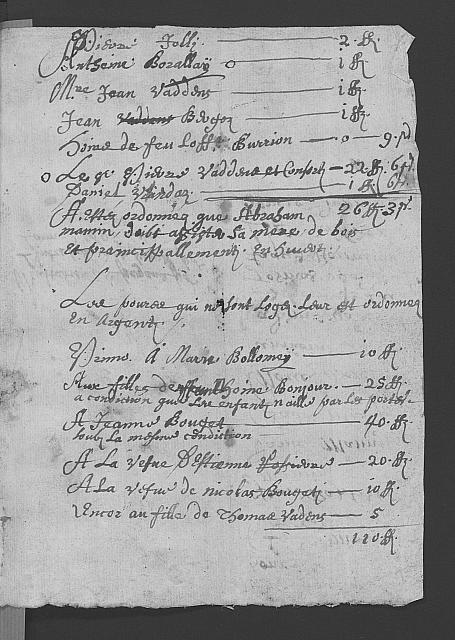 Pierre Jolli 2 ff
Antheine Borallay o 1 ff
Mre Jean Vaddens 1 ff
Jean Vaddens Bougoz 1 ff
Hoirs de feu Loff Burrion o 9 pd
o Les Sr Pierre Vaddens et Consort 22 ff 6
Daniel 1 ff 6
A Estez ordonnez que Abraham 26 ff 3
mamin, doibt assister sa mere de bois
et prainsippallement
Les poures qui ne sont Logez Leur est ordonnez
En Argent
Primo A Marie Bollomey 10 ff
Aux filles de Thoine Bonjour 25 ff
a condition que les enfantz n'aille par les portes
A Jeanne Bouget 40 ff
soubz la mesme condition
A La vefve D'Estienne 20 ff
A La vefve de nicolas Bougetz 10 ff
Encor au fille de Thomas Vadens 5
110 ff